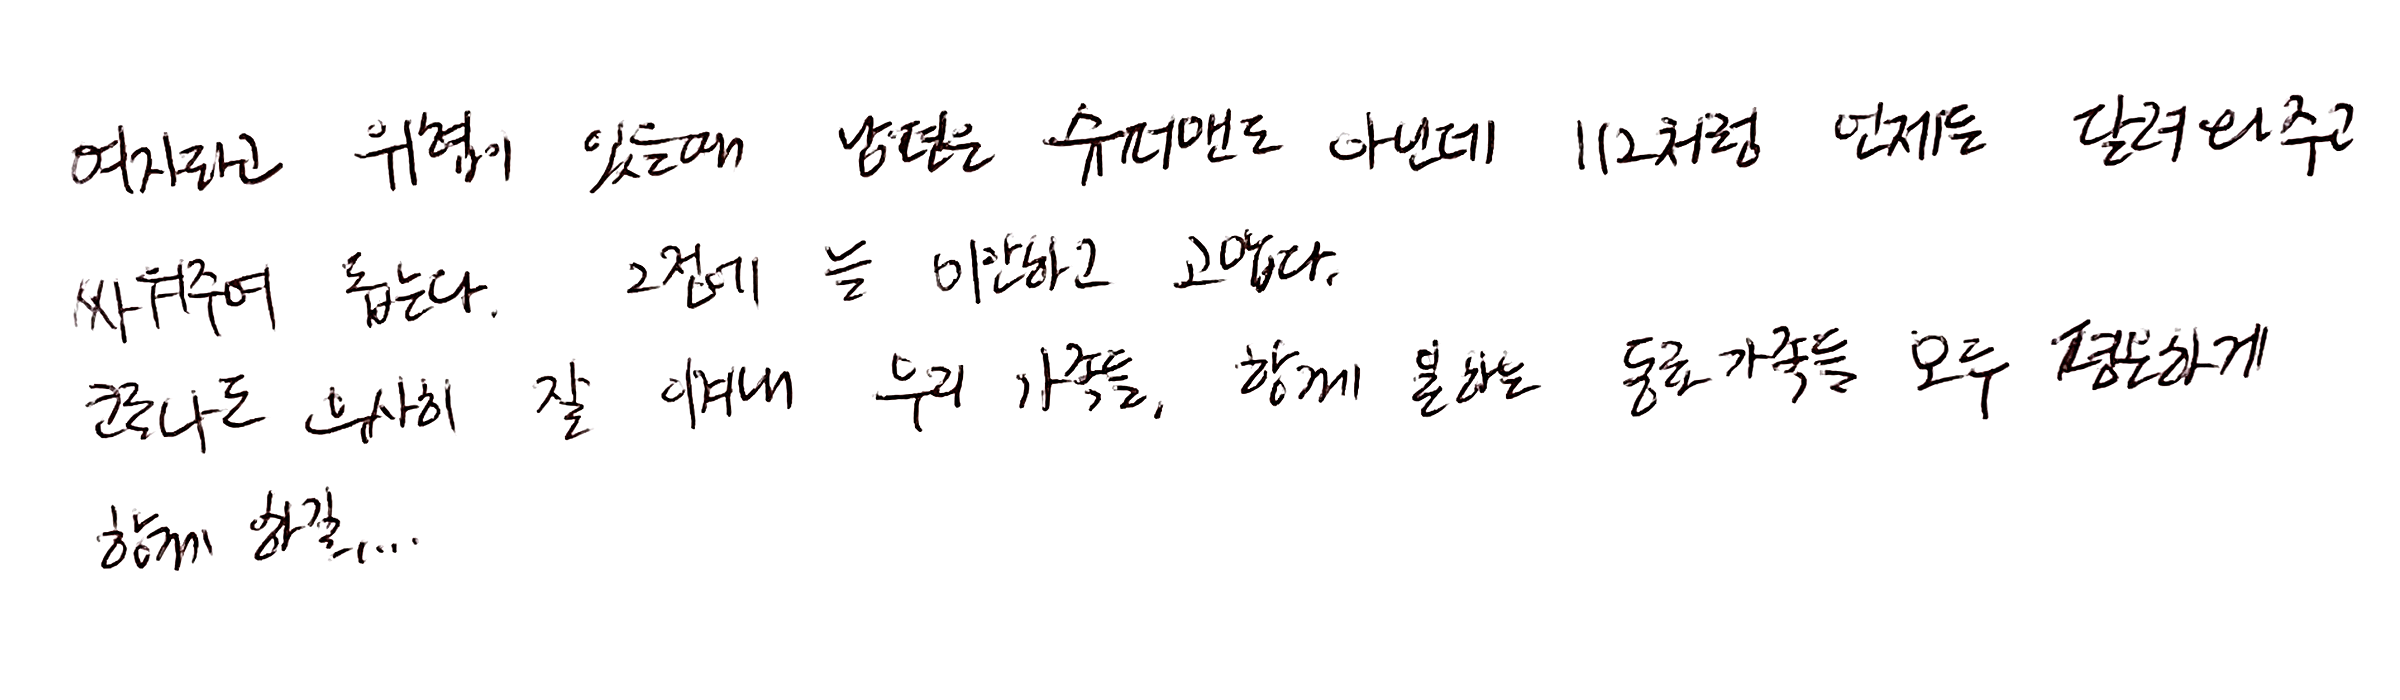 여자라고 위협이 있을때 남편은 슈퍼맨도 아닌데 112처럼 언제든 달려와주고
싸워주며 돕는다. 그점에 늘 미안하고 고맙다.
코로나도 무사히 잘 이겨내 우리 가족들, 함께 일하는 동료가족들 모두 평온하게
함께 하길....